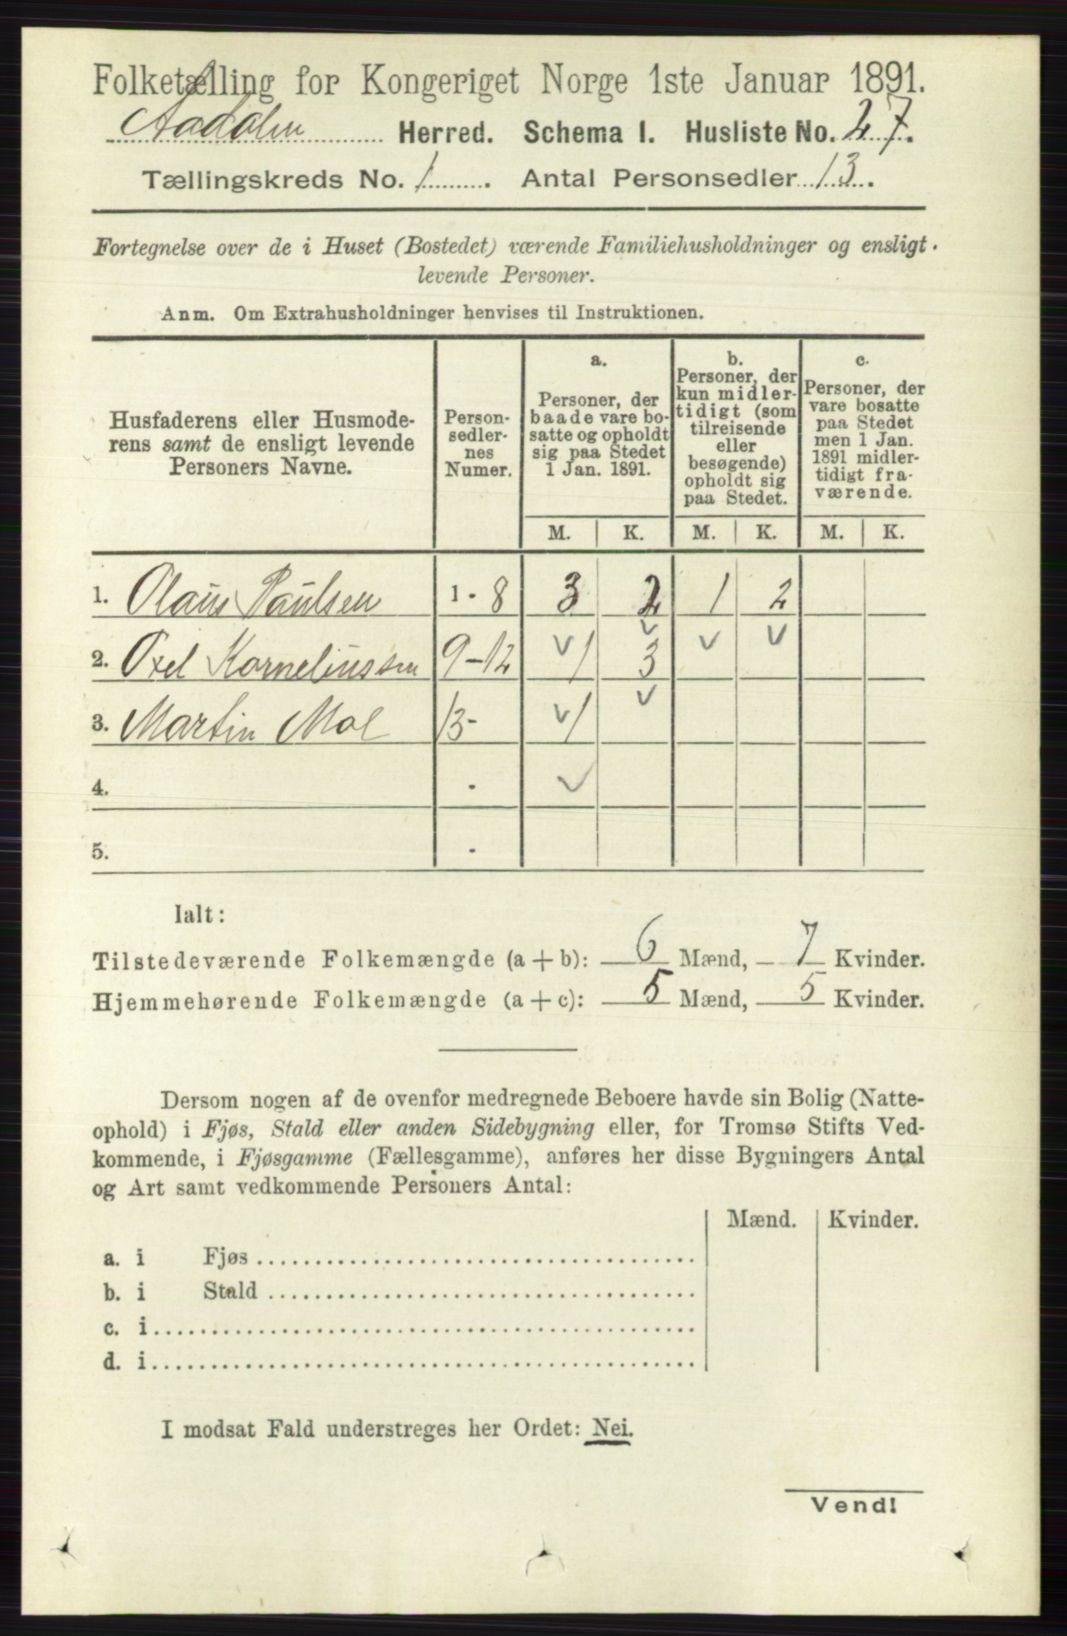 Folketælling for Kongeriget Norge 1ste Januar 1891.
Aadalen Herred. Schema I. Husliste No. 27.
Tællingskreds No. 1. Antal Personsedler 13.
Fortegnelse over de i Huset (Bostedet) værende Familiehusholdninger og ensligt
levende Personer.
Anm. Om Extrahusholdninger henvises til Instruktionen.
Husfaderens eller Husmoderens samt de ensligt levende Personers Navne.
Person-
sedler-
nes
Numer.
a.
Personer, der
baade vare bo-
satte og opholdt
sig paa Stedet
1 Jan. 1891.
b.
Personer, der
kun midler-
tidigt (som
tilreisende
eller
besøgende)
opholdt sig
paa Stedet.
c.
Personer, der
vare bosatte
paa Stedet
men 1 Jan.
1891 midler-
tidigt fra-
værende.
M. K. M. K. M. K.
1. Olaus Paulsen 1-8 3 2 1 2
2. Oxel Korneliussen 9-12 1 3
3. Martin Moe 13- 1
4.
5.
Ialt:
Tilstedeværende Folkemængde (a + b): 6 Mænd, 7 Kvinder.
Hjemmehørende Folkemængde (a + c): 5 Mænd, 5 Kvinder.
Dersom nogen af de ovenfor medregnede Beboere havde sin Bolig (Natte-
ophold) i Fjøs, Stald eller anden Sidebygning eller, for Tromsø Stifts Ved-
kommende, i Fjøsgamme (Fællesgamme), anføres her disse Bygningers Antal
og Art samt vedkommende Personers Antal:
Mænd. Kvinder.
a. i Fjøs
b. i Stald
c. i
d. i
I modsat Fald understreges her Ordet: Nei.
Vend!